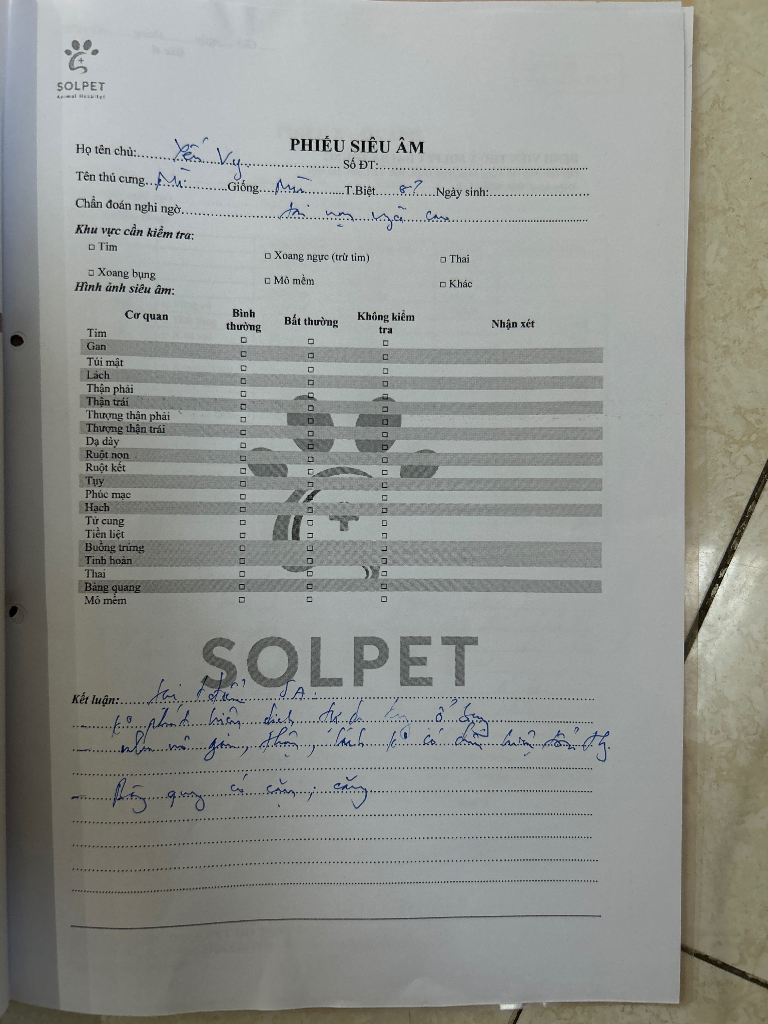 SOLPET
Animal Hospital
PHIẾU SIÊU ÂM
Họ tên chủ: Yến Vy Số ĐT:
Tên thú cưng Giống T.Biệt Ngày sinh:
Chẩn đoán nghi ngờ tai nạn ngã cao
Khu vực cần kiểm tra:
□ Tim □ Xoang ngực (trừ tim) □ Thai
□ Xoang bụng □ Mô mềm □ Khác
Hình ảnh siêu âm:
Cơ quan Bình thường Bất thường Không kiểm tra Nhận xét
Tim □ □ □
Gan □ □ □
Túi mật □ □ □
Lách □ □ □
Thận phải □ □ □
Thận trái □ □ □
Thượng thận phải □ □ □
Thượng thận trái □ □ □
Dạ dày □ □ □
Ruột non □ □ □
Ruột kết □ □ □
Tụy □ □ □
Phúc mạc □ □ □
Hạch □ □ □
Tử cung □ □ □
Tiền liệt □ □ □
Buồng trứng □ □ □
Tinh hoàn □ □ □
Thai □ □ □
Bàng quang □ □ □
Mô mềm □ □ □
SOLPET
Kết luận: tại điểm SA:
- ko phát hiện dịch tự do ổ bụng
- nhu mô gan, thận, lách ko có dấu hiệu
- Bàng quang có cặn, căng